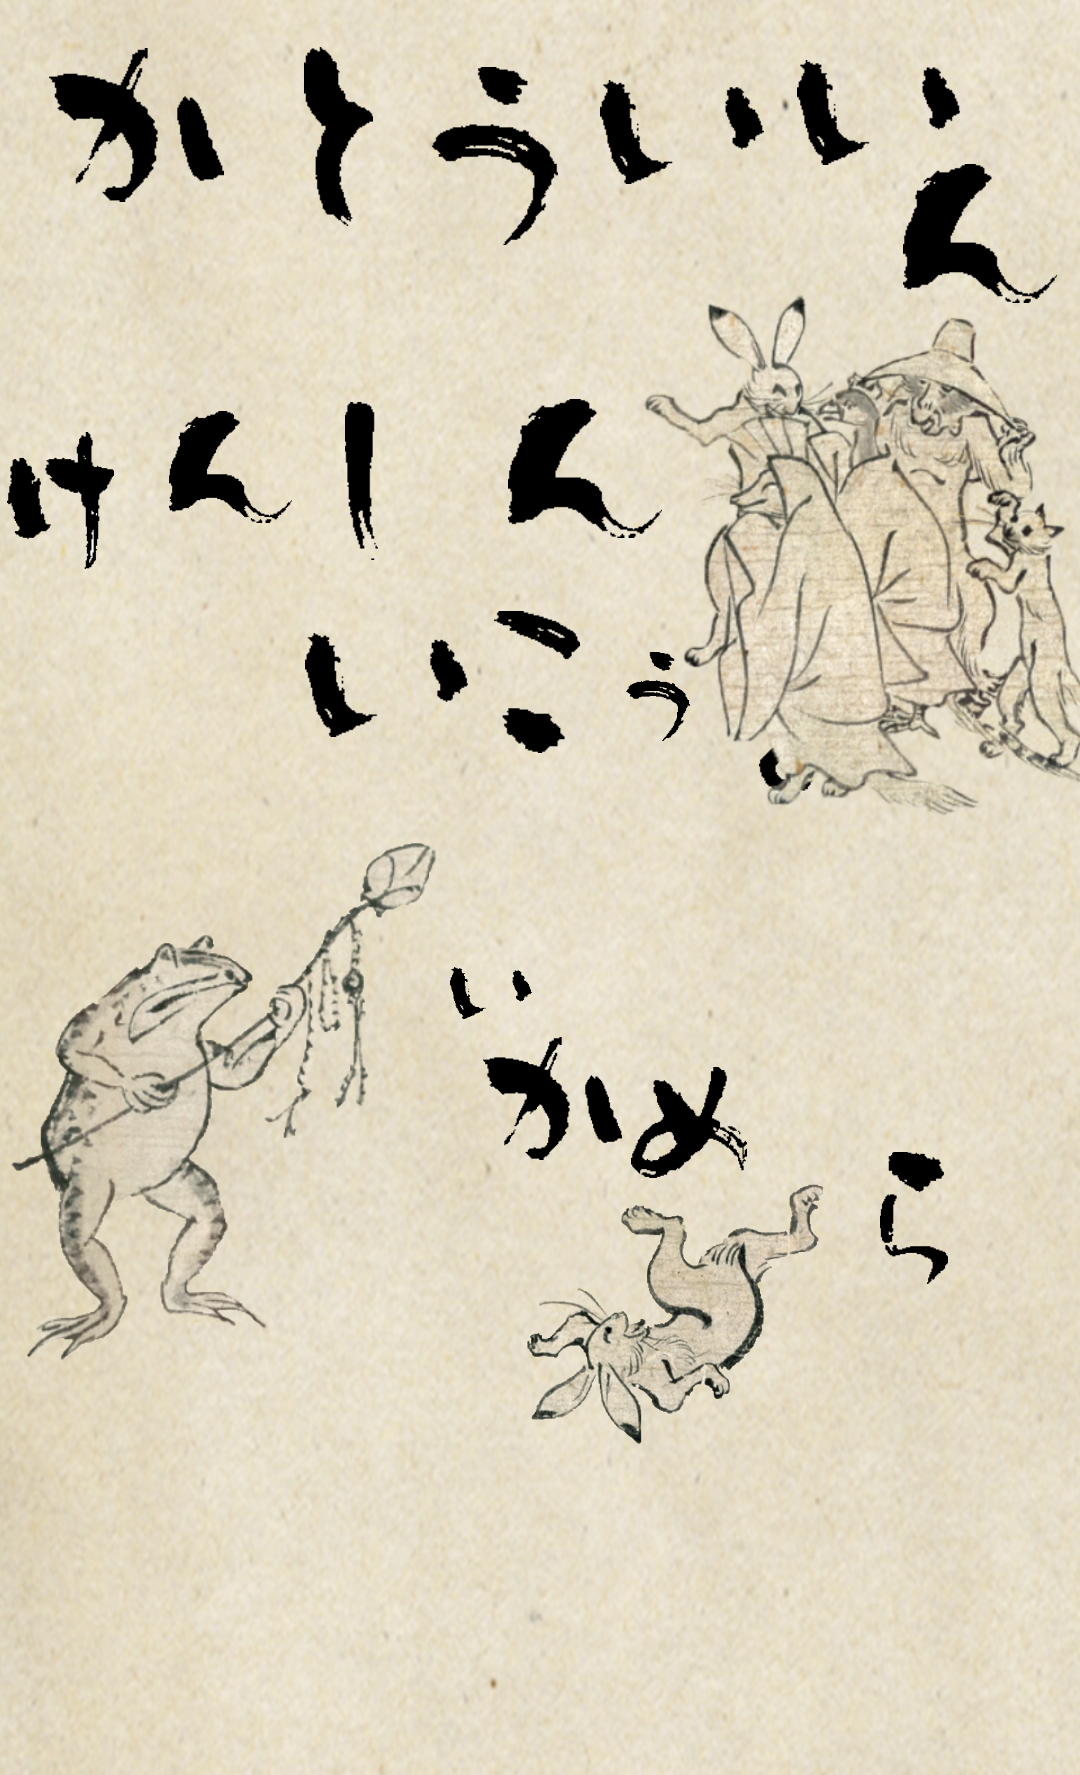 かとういいん
けんしん
いこう
い
かめ
ら